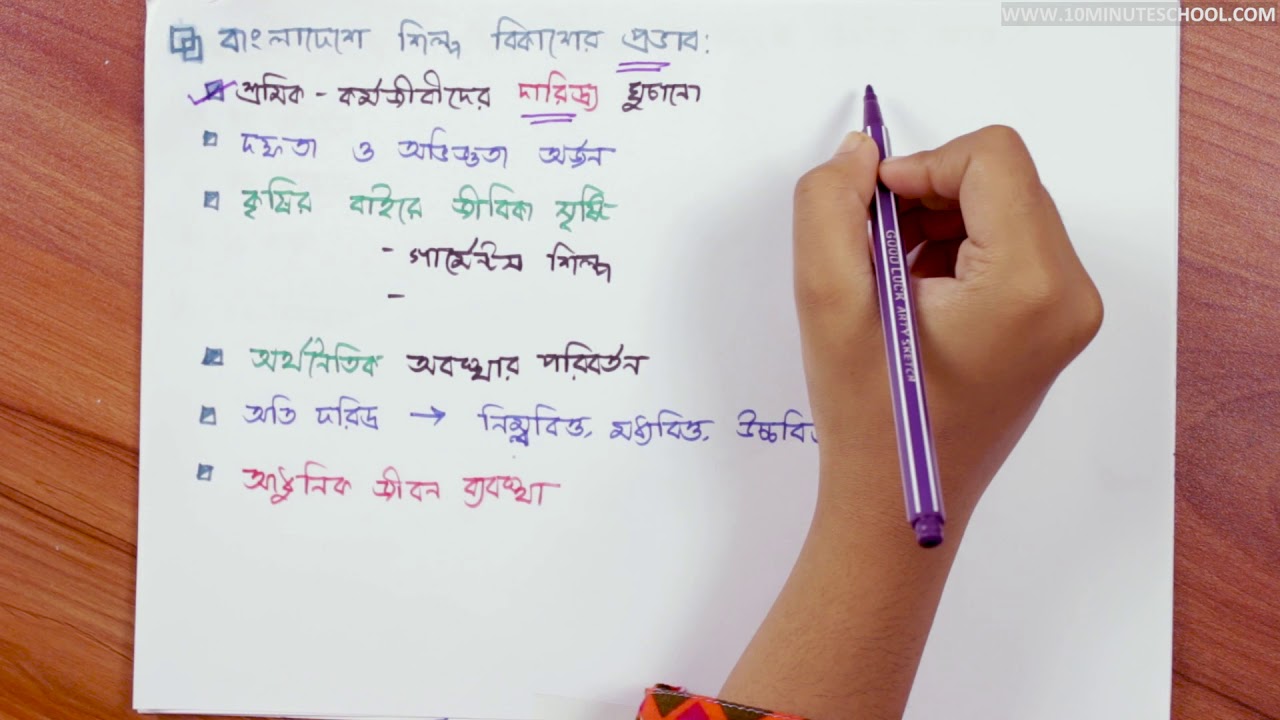 WWW.10MINUTESCHOOL.COM
বাংলাদেশে শিল্প বিকাশের প্রভাব:
শ্রমিক - কর্মজীবীদের দারিদ্র্য ঘুচানো
দক্ষতা ও অভিজ্ঞতা অর্জন
কৃষির বাইরে জীবিকা সৃষ্টি
- গার্মেন্টস শিল্প
-
অর্থনৈতিক অবস্থার পরিবর্তন
অতি দরিদ্র → নিম্নবিত্ত, মধ্যবিত্ত, উচ্চবি
আধুনিক জীবন ব্যবস্থা
GOODLUCK ARTY SKETCH